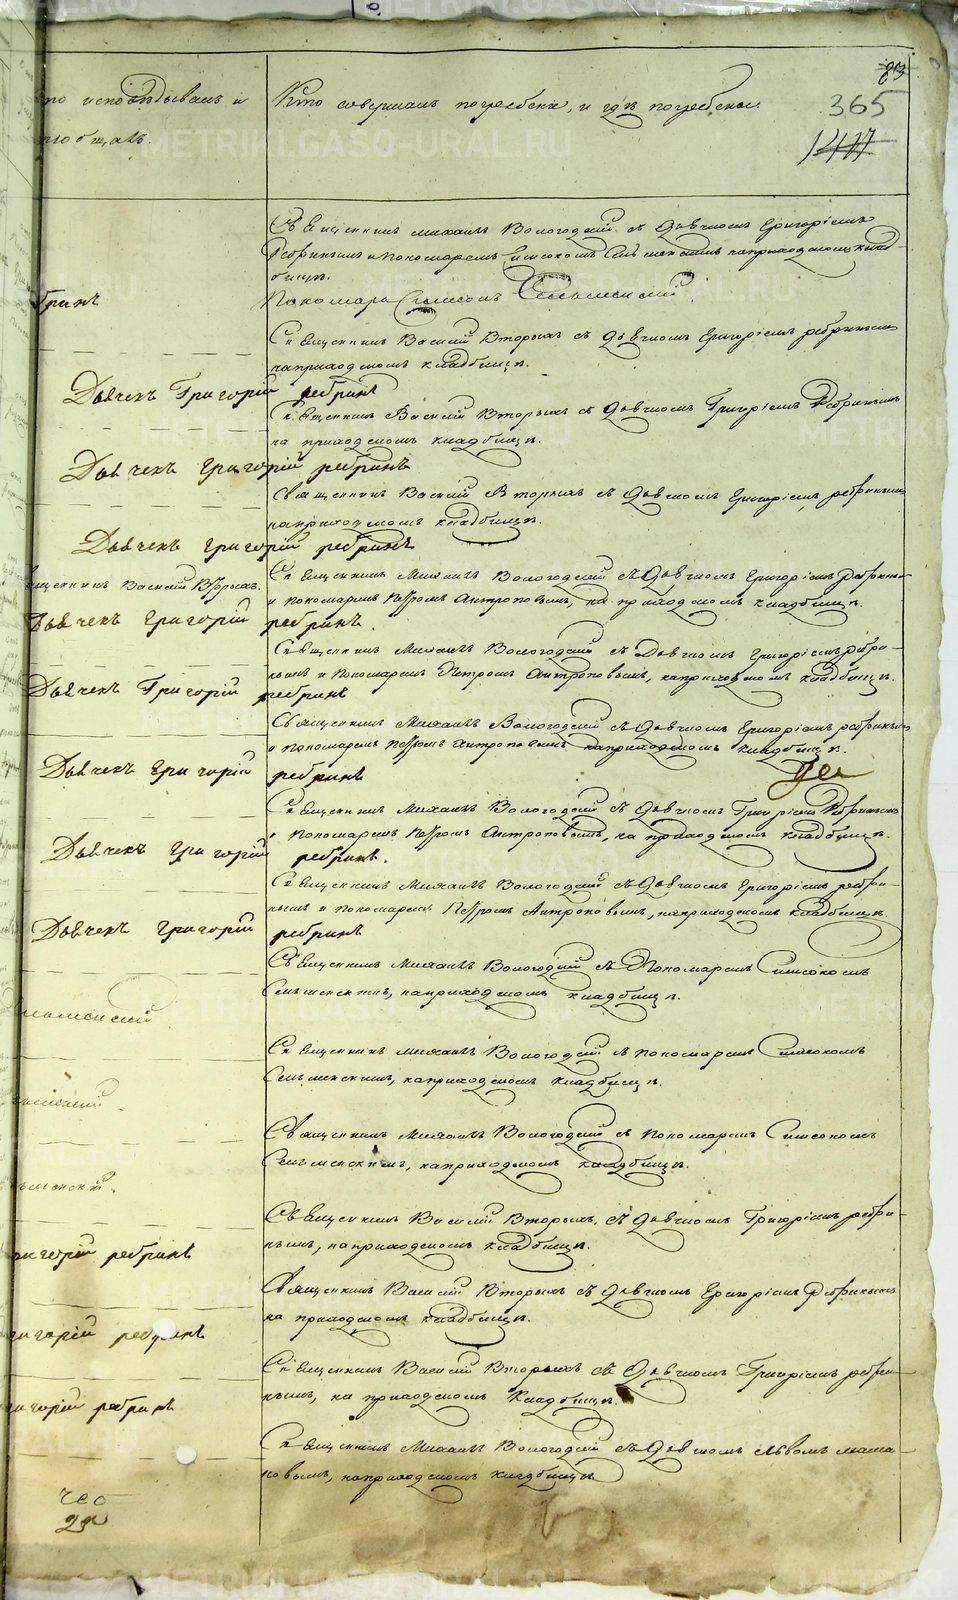 исповѣдывалъ и
Кто совершалъ погребеніе, и гдѣ погребены.
365
Священникъ Михаилъ Вологодскій съ Дьячкомъ Григоріемъ
Ребринымъ и пономаремъ Симеономъ на приходскомъ клад-
бищѣ.
Пономарь Симеонъ
Священникъ Василій Вторыхъ съ Дьячкомъ Григоріемъ Ребринымъ
на приходскомъ кладбищѣ.
Дьячекъ Григорій ребринъ
Священникъ Василій Вторыхъ съ Дьячкомъ Григоріемъ Ребринымъ
на приходскомъ кладбищѣ.
Дьячекъ Григорій ребринъ
Священникъ Василій Вторыхъ съ Дьячкомъ Григоріемъ ребринымъ
на приходскомъ кладбищѣ.
Дьячекъ Григорій ребринъ
Василій Вторыхъ.
Священникъ Михаилъ Вологодскій съ Дьячкомъ Григоріемъ Ребринымъ
и пономаремъ Петромъ Антроповымъ, на приходскомъ кладбищѣ.
Дьячекъ Григорій ребринъ.
Священникъ Михаилъ Вологодскій съ Дьячкомъ Григоріемъ ребри-
нымъ и Пономаремъ Петромъ Антроповымъ, на приходскомъ кладбищѣ.
Дьячекъ Григорій ребринъ
Священникъ Михаилъ Вологодскій съ Дьячкомъ Григоріемъ ребринымъ
и пономаремъ Петромъ Антроповымъ на приходскомъ кладбищѣ.
Дьячекъ Григорій ребринъ
Священникъ Михаилъ Вологодскій съ Дьячкомъ Григоріемъ Ребринымъ
и Пономаремъ Петромъ Антроповымъ, на приходскомъ кладбищѣ.
Дьячекъ Григорій ребринъ.
Священникъ Михаилъ Вологодскій съ Дьячкомъ Григоріемъ ребри-
нымъ и пономаремъ Петромъ Антроповымъ, на приходскомъ кладбищѣ.
Дьячекъ Григорій ребринъ
Священникъ Михаилъ Вологодскій съ Пономаремъ Симеономъ
на приходскомъ кладбищѣ.
Священникъ Михаилъ Вологодскій съ пономаремъ Симеономъ
на приходскомъ кладбищѣ.
Священникъ Михаилъ Вологодскій съ Пономаремъ Симеономъ
на приходскомъ кладбищѣ.
Священникъ Василій Вторыхъ, съ Дьячкомъ Григоріемъ ребри-
нымъ, на приходскомъ кладбищѣ.
ригорій ребринъ
Священникъ Василій Вторыхъ съ Дьячкомъ Григоріемъ Ребринымъ
на приходскомъ кладбищѣ.
ригорій ребринъ
Священникъ Василій Вторыхъ съ Дьячкомъ Григоріемъ ребри-
нымъ, на приходскомъ кладбищѣ.
игорій ребринъ
Священникъ Михаилъ Вологодскій съ Дьячкомъ Львомъ мама-
новымъ, на приходскомъ кладбищѣ
METRIKI.GASO-URAL.RU